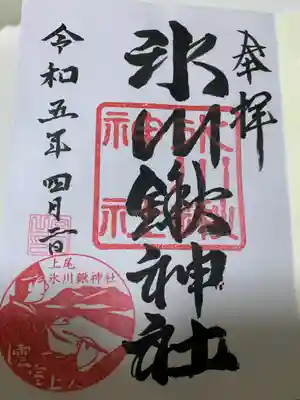 奉拝
氷川鍬神社
氷川
神社
令和五年四月一日
上尾
氷川鍬神社